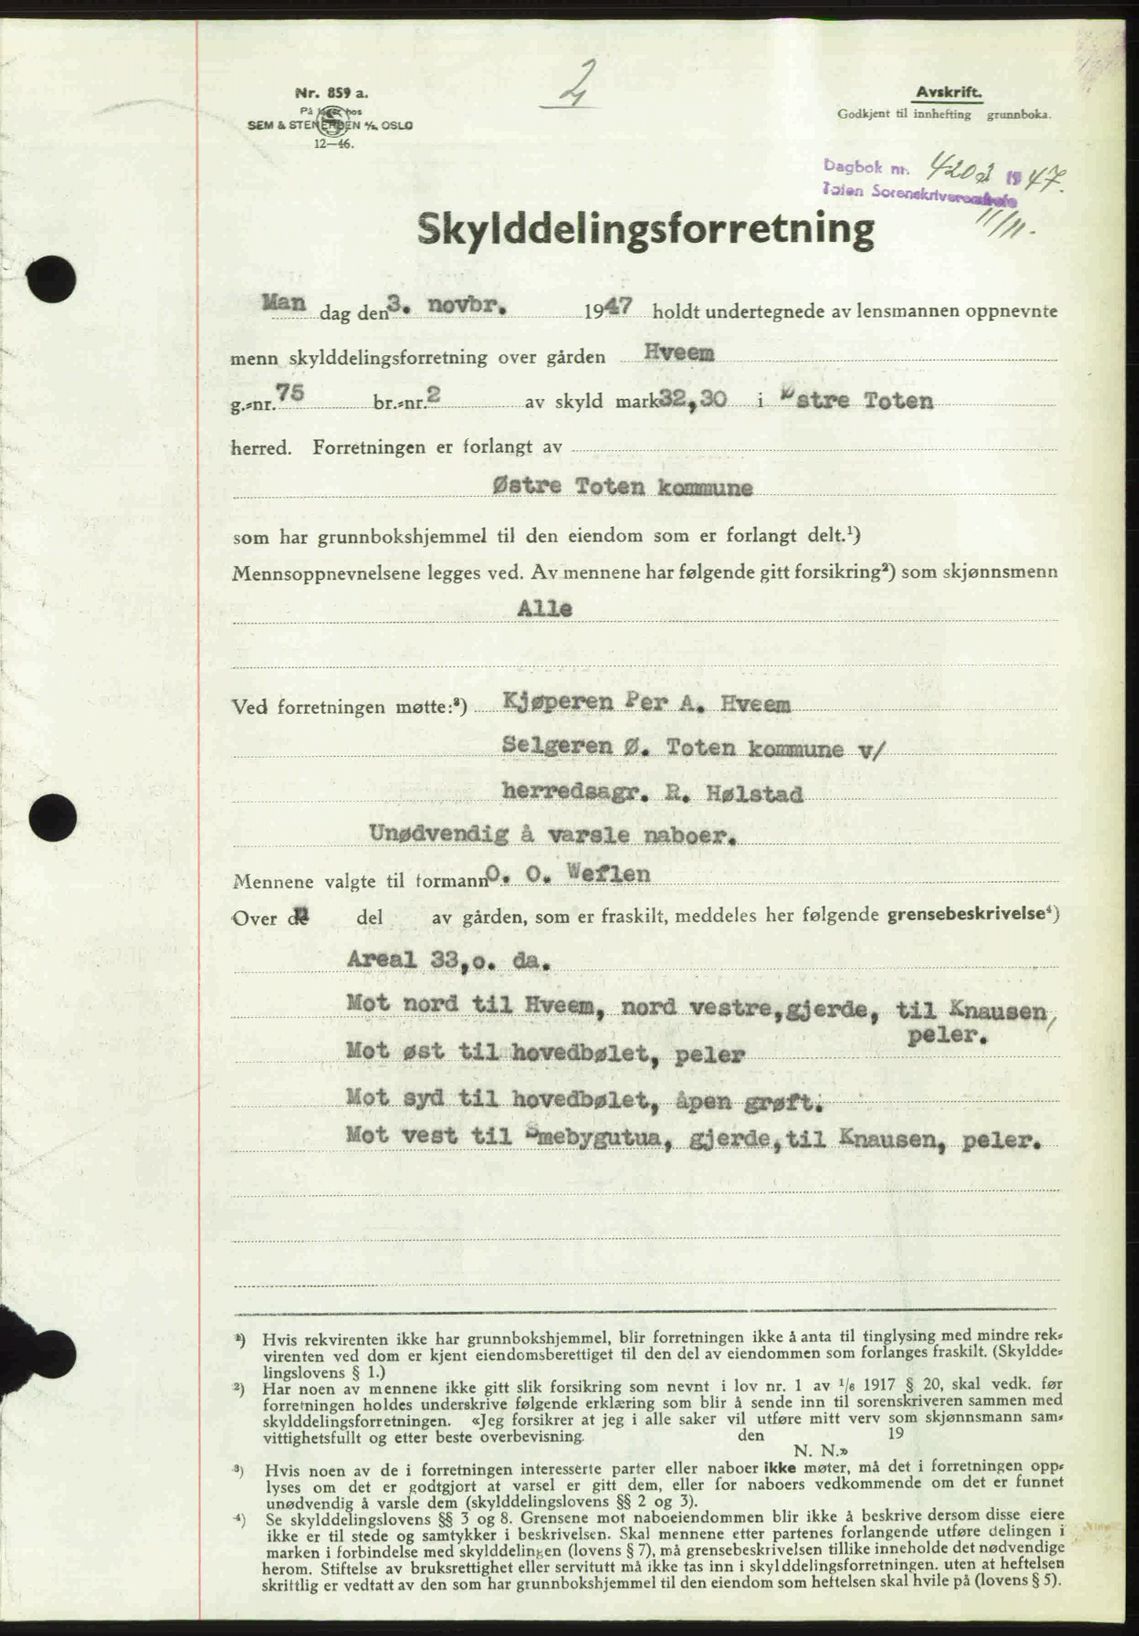 2
Nr. 859 a.
På lager hos
SEM & STENERSEN A/S, OSLO
12—46.
Avskrift.
Godkjent til innhefting grunnboka.
Dagbok nr. 4202 1947.
Toten Sorenskriverembede
11/11.
Skylddelingsforretning
Man dag den 3. novbr. 1947 holdt undertegnede av lensmannen oppnevnte
menn skylddelingsforretning over gården Hveem
g.-nr. 75 br.-nr. 2 av skyld mark 32,30 i Østre Toten
herred. Forretningen er forlangt av
Østre Toten kommune
som har grunnbokshjemmel til den eiendom som er forlangt delt.¹)
Mennsoppnevnelsene legges ved. Av mennene har følgende gitt forsikring²) som skjønnsmenn
Alle
Ved forretningen møtte:³) Kjøperen Per A. Hveem
Selgeren Ø. Toten kommune v/
herredsagr. R. Hølstad
Unødvendig å varsle naboer.
Mennene valgte til formann O. O. Weflen
Over de del av gården, som er fraskilt, meddeles her følgende grensebeskrivelse⁴)
Areal 33,o. da.
Mot nord til Hveem, nord vestre, gjerde, til Knausen,
peler.
Mot øst til hovedbølet, peler
Mot syd til hovedbølet, åpen grøft.
Mot vest til Smebygutua, gjerde, til Knausen, peler.
¹) Hvis rekvirenten ikke har grunnbokshjemmel, blir forretningen ikke å anta til tinglysing med mindre rek-
virenten ved dom er kjent eiendomsberettiget til den del av eiendommen som forlanges fraskilt. (Skyldde-
lingslovens § 1.)
²) Har noen av mennene ikke gitt slik forsikring som nevnt i lov nr. 1 av 1/6 1917 § 20, skal vedk. før
forretningen holdes underskrive følgende erklæring som blir å sende inn til sorenskriveren sammen med
skylddelingsforretningen. «Jeg forsikrer at jeg i alle saker vil utføre mitt verv som skjønnsmann sam-
vittighetsfullt og etter beste overbevisning. den 19
N. N.»
³) Hvis noen av de i forretningen interesserte parter eller naboer ikke møter, må det i forretningen opp-
lyses om det er godtgjort at varsel er gitt dem, eller for naboers vedkommende om det er funnet
unødvendig å varsle dem (skylddelingslovens §§ 2 og 3).
⁴) Se skylddelingslovens §§ 3 og 8. Grensene mot naboeiendommen blir ikke å beskrive dersom disse eiere
ikke er til stede og samtykker i beskrivelsen. Skal mennene etter partenes forlangende utføre delingen i
marken i forbindelse med skylddelingen (lovens § 7), må grensebeskrivelsen tillike inneholde det nødvendige
herom. Stiftelse av bruksrettighet eller servitutt må ikke tas inn i skylddelingsforretningen. uten at heftelsen
skriftlig er vedtatt av den som har grunnbokshjemmel til den eiendom som heftelsen skal hvile på (lovens § 5).